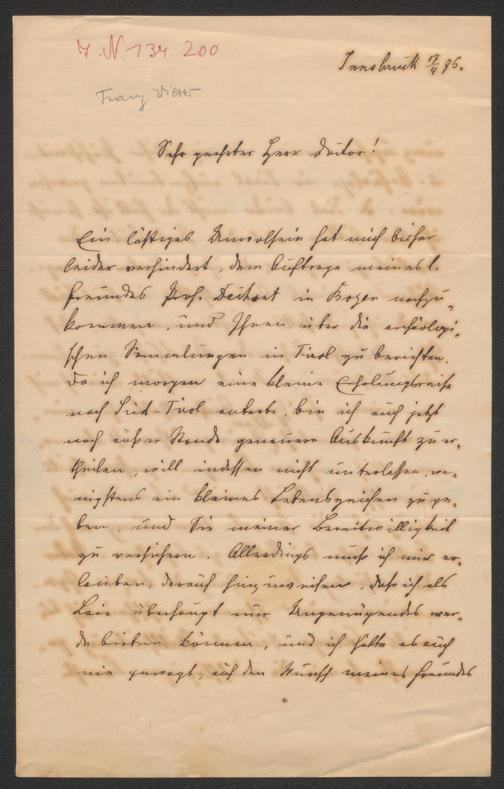 J. N. 134.200
Innsbruck 12/4 96.
Franz Wieser
Sehr geehrter Herr Doctor!
Ein lästiges Unwolsein hat mich bisher
leider verhindert, dem Auftrage meines l.
Freundes Prof. in Bozen nachzu-
kommen, und Ihnen über die archäologi-
schen Sammlungen in Tirol zu berichten.
Da ich morgen eine kleine Erholungsreise
nach Süd-Tirol antrete, bin ich auch jetzt
noch außer Stande genauere Auskunft zu er-
theilen, will indessen nicht unterlassen, we-
nigstens ein kleines Lebenszeichen zu ge-
ben, und Sie meiner Bereitwilligkeit
zu versichern. Allerdings muß ich mir er-
lauben, darauf hinzuweisen, daß ich als
Laie überhaupt nur Ungenügendes wer-
de bieten können, und ich hätte es auch
nie gewagt, auf den Wunsch meines Freundes